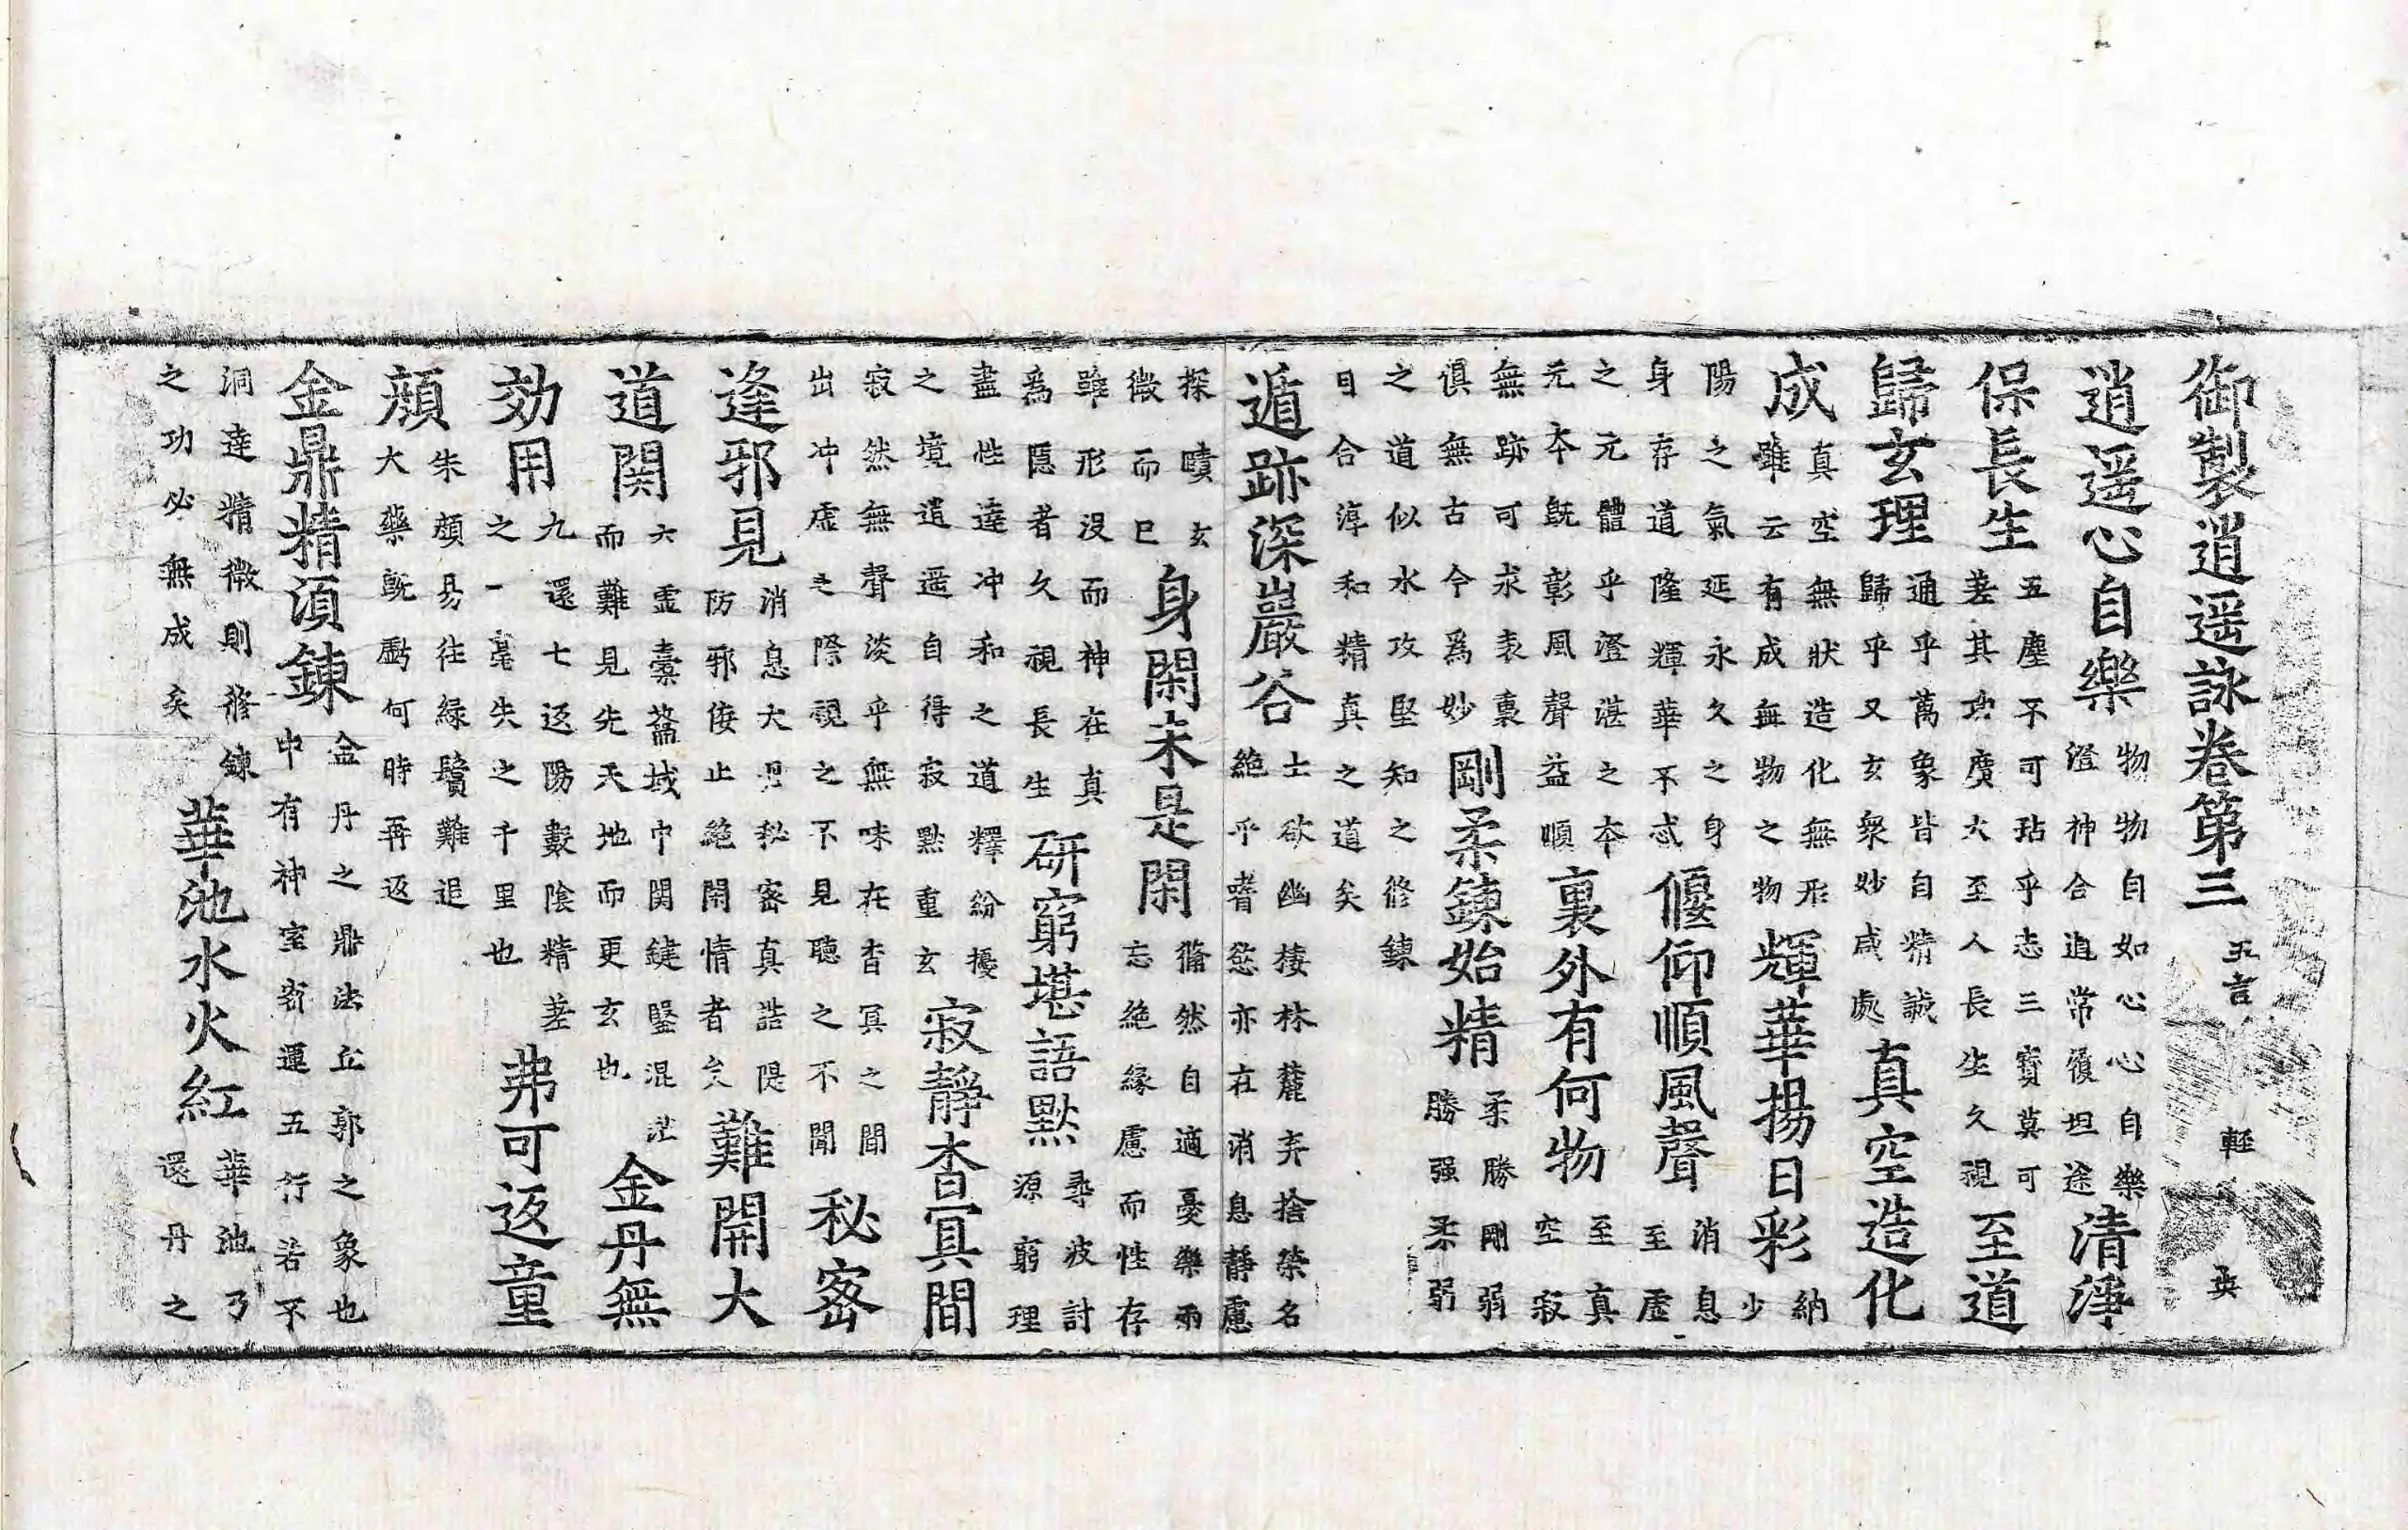 御製逍遥詠卷第三 五言 輕 英
逍遥心自樂 物物自如心心自樂 澄神合道常復坦途 清淨
保長生 五塵不可玷乎志三寶莫可 差其功廣大至人長生久視 至道
歸玄理 通乎萬象皆自精誠 歸乎又玄衆妙咸處 真空造化
成 真空無狀造化無形 雖云有成無物之物 輝華揚日彩 納 少
陽之氣延永久之身 身存道隆輝華不忒 偃仰順風聲 消息 至虛
之元體乎澄湛之本 元本既彰風聲益順 裏外有何物 至真 空寂
無跡可求表裏 俱無古今爲妙 剛柔鍊始精 柔勝剛弱 勝强柔弱
之道似水攻堅知之修鍊 日合淳和精真之道矣
遁跡深巖谷 士欲幽棲林麓弃捨榮名 絶乎嗜慾亦在消息靜慮
探賾玄 微而已 身閑未是閑 翛然自適憂樂兩 忘絶緣慮而性存
雖形没而神在真 爲隱者久視長生 研窮堪語默 尋波討 源窮理
盡性達冲和之道釋紛擾 之境逍遥自得寂默重玄 寂靜杳冥間
寂然無聲淡乎無味在杳冥之間 出冲虛之際視之不見聽之不聞 秘密
逢邪見 消息大丹秘密真誥隄 防邪佞止絶閑情者矣 難開大
道関 六靈橐籥域中関鍵鑿混茫 而難見先天地而更玄也 金丹無
効用 九還七返陽數陰精差 之一毫失之千里也 弗可返童
顔 朱顔易往緑鬢難追 大藥既虧何時再返
金鼎精須鍊 金丹之鼎法丘郭之象也 中有神室密運五行若不
洞達精微則修鍊 之功必無成矣 華池水火紅 華池乃 還丹之